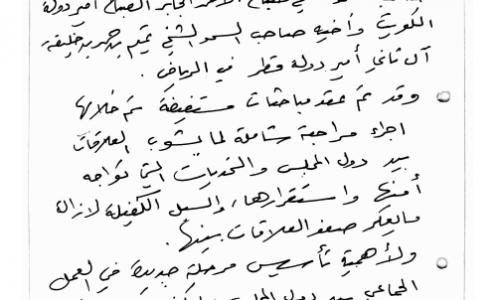 الأحمد الجابر الصباح أمير دولة
الكويت وأخيه صاحب السمو الشيخ تميم بن حمد بن خليفة
آل ثاني أمير دولة قطر في الرياض .
وقد تم عقد مباحثات مستفيضة تم خلالها
اجراء مراجعة شاملة لما يشوب العلاقات
بين دول المجلس والتحديات التي تواجه
أمنها واستقرارها، والسبل الكفيلة لازالة
ما يعكر صفو العلاقات بينها.
ولأهمية تأسيس مرحلة جديدة في العمل
الجماعي بين دول